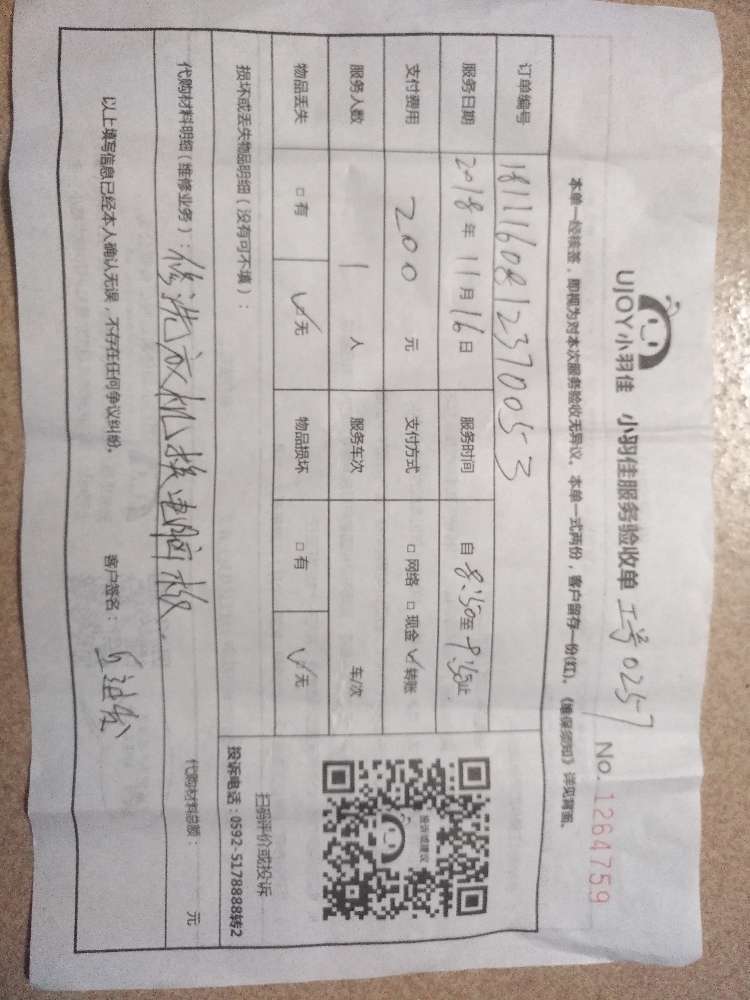 UJOY小羽佳 小羽佳服务验收单 工号0257
No. 1264759
本单一经核签，即视为对本次服务验收无异议。本单一式两份，客户留存一份(红)。《维保须知》详见背面。
订单编号 1811160812370053
服务日期 2018年11月16日 服务时间 自8:50至9:50止
支付费用 200元 支付方式 □网络 □现金 ☑转账
服务人数 1人 服务车次 车/次
物品丢失 □有 ☑无 物品损坏 □有 ☑无
损坏或丢失物品明细(没有可不填)：
投诉或建议
扫码评价或投诉
投诉电话：0592-5178888转2
代购材料明细(维修业务)：修洗衣机换电脑板. 代购材料总额： 元
以上填写信息已经本人确认无误，不存在任何争议纠纷。 客户签名：